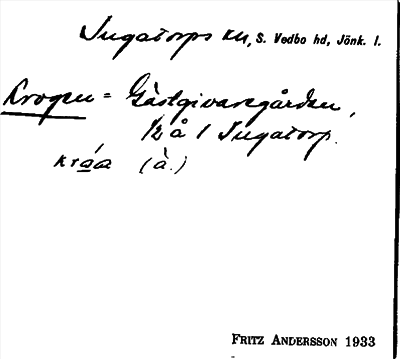 Ingatorps sn, S. Vedbo hd, Jönk. l.
Krogen = Gästgivaregården,
1/2 å 1 Ingatorp.
kråa (å.)
FRITZ ANDERSSON 1933